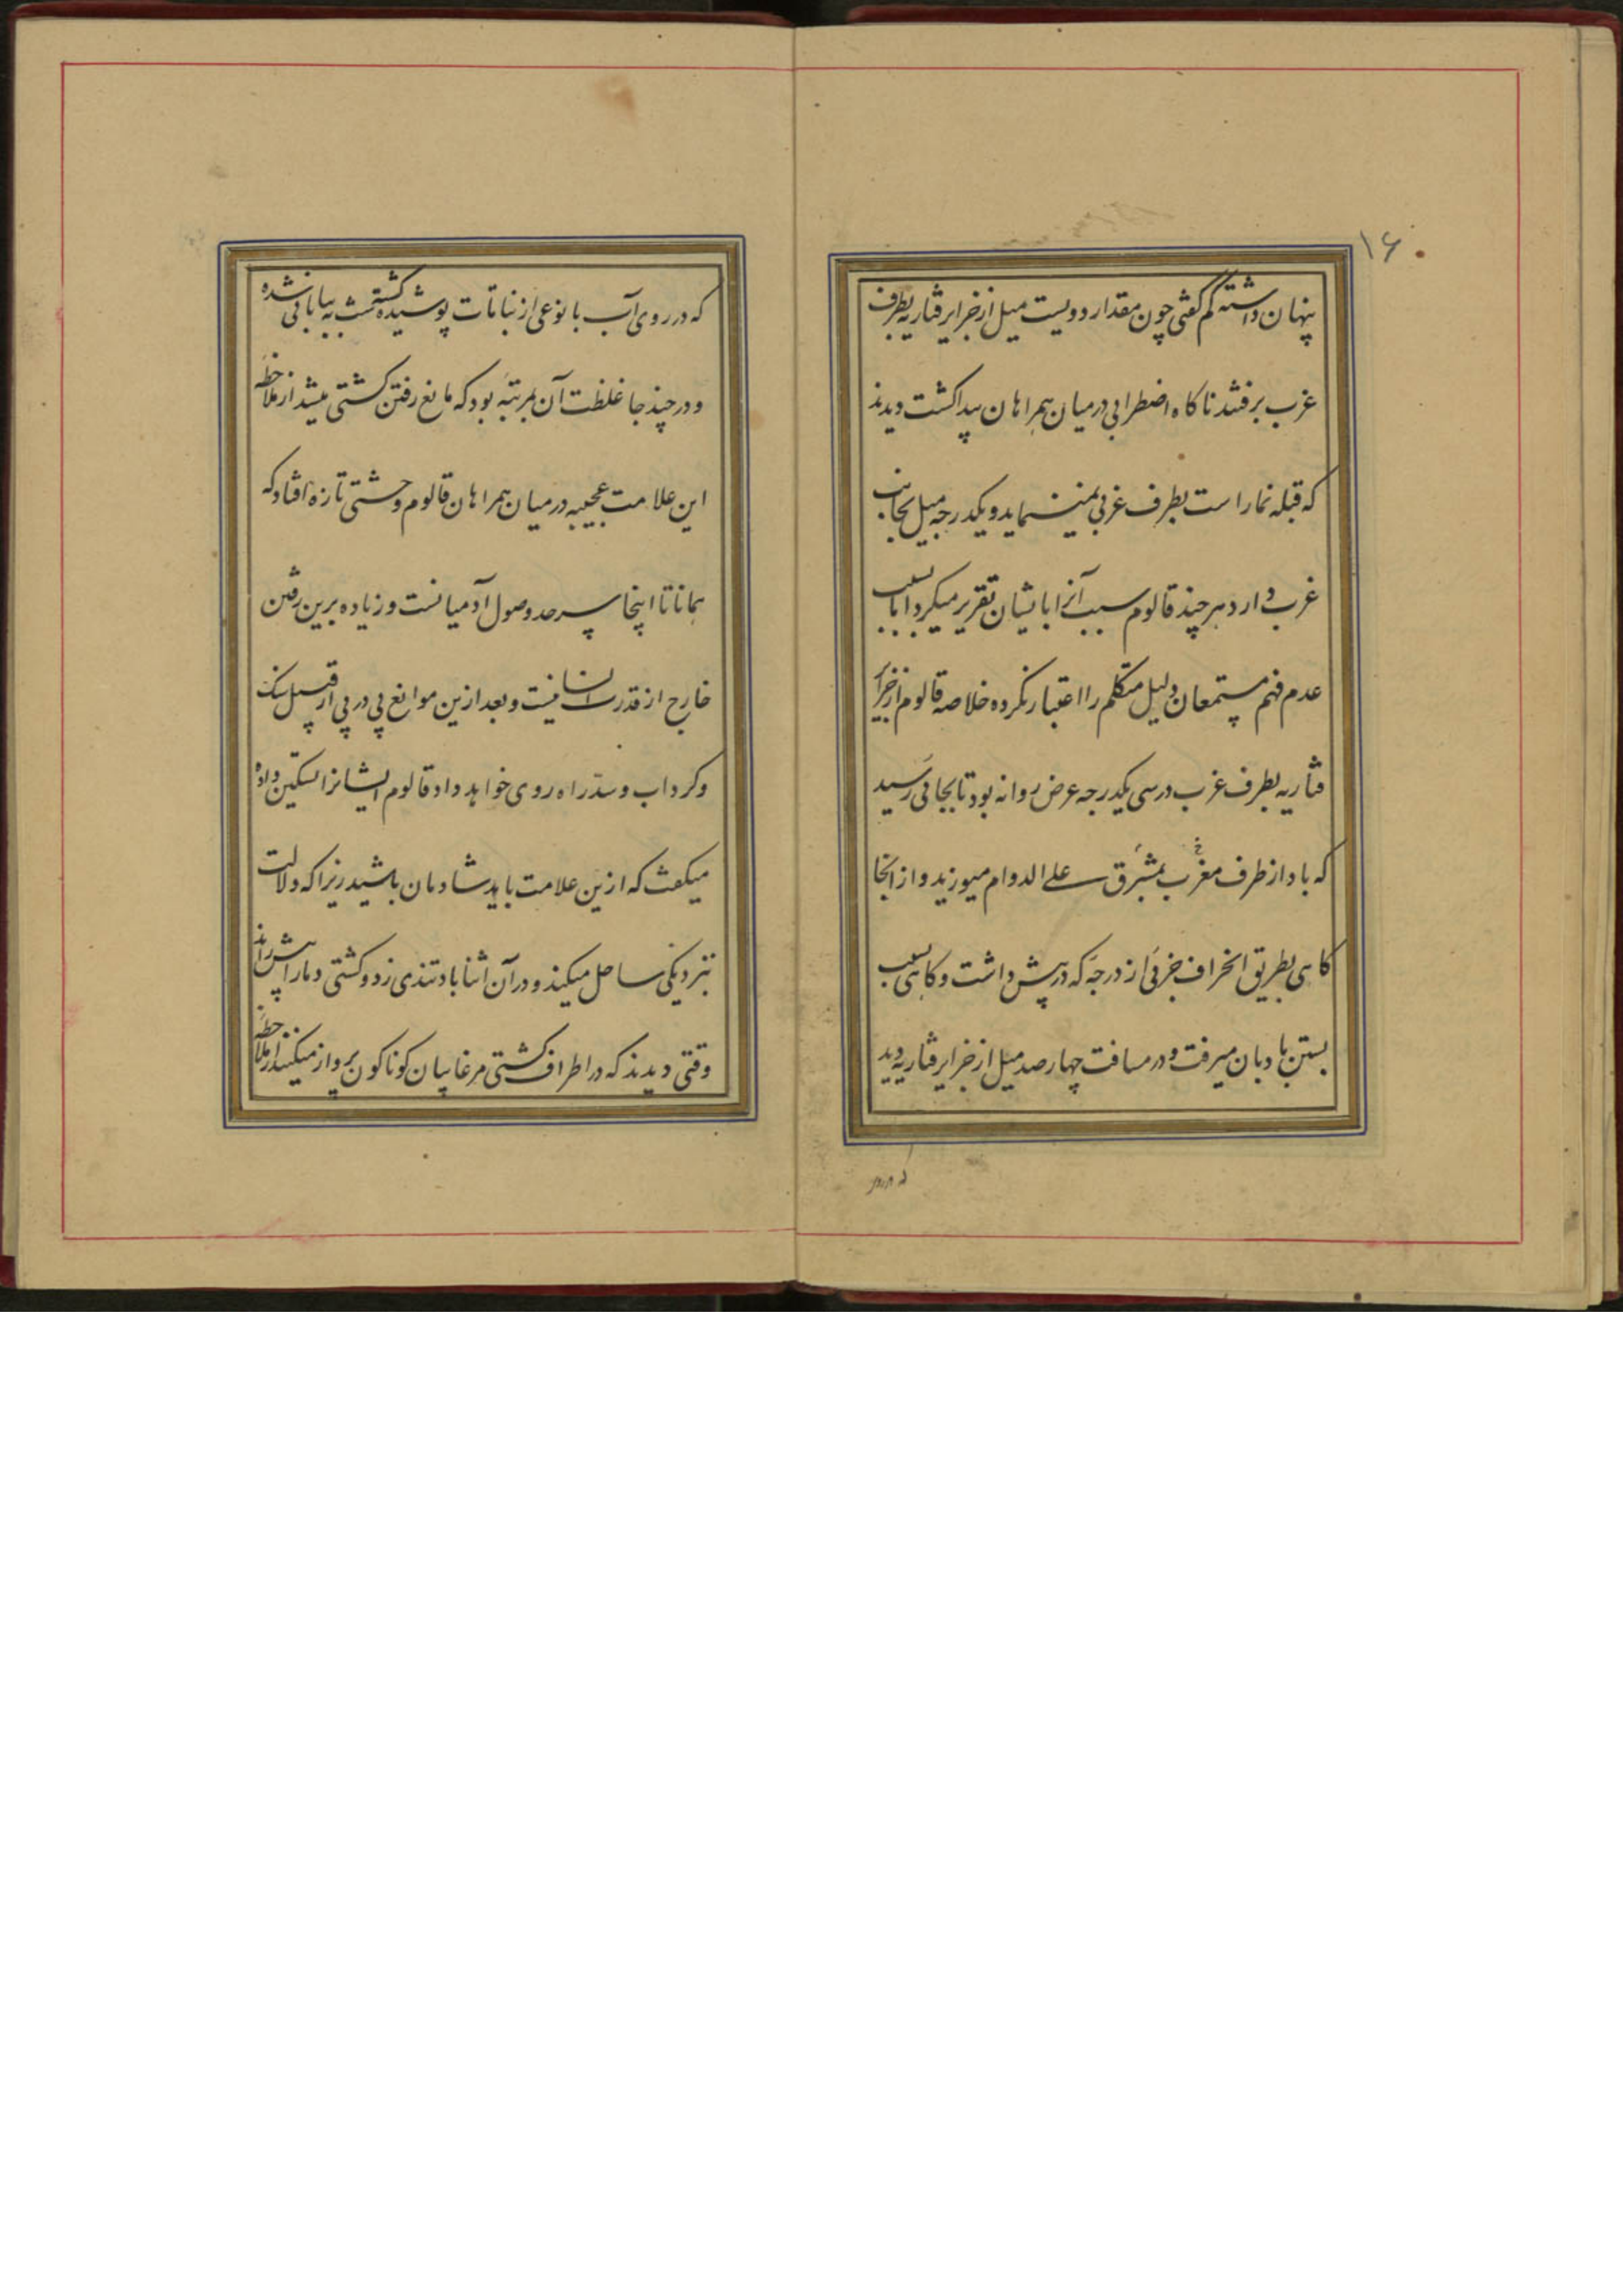 ۱۶
پنهان داشته کم گفتی چون مقدار دویست میل از جزایر قناریه بطرف
غرب برفتند ناکاه اضطرابی درمیان همراهان پیدا کشت دیدند
که قبله نما راست بطرف غربی نمینماید و یکدرجه میل بجانب
غرب دارد هر چند قالوم سبب آنرا بایشان تقریر میکرد اما بسبب
عدم فهم مستمعان دلیل متکلم را اعتبار نکرده خلاصه قالوم از جزایر
قناریه بطرف غرب در سی یکدرجه عرض روانه بود تا بجائی رسید
که باد از طرف مغرب بمشرق علی الدوام میوزید و از آنجا
کاهی بطریق انحراف جزئی از درجه که در پیش داشت و کاهی بسبب
بستن بادبان میرفت و در مسافت چهار صد میل از جزایر قناریه دید
که در روی آب با نوعی از نباتات پوشیده کشته مشت به بیابانی شده
و در چند جا غلظت آن بمرتبه بود که مانع رفتن کشتی میشد از ملاحظه
این علامت عجیبه درمیان همراهان قالوم وحشتی تازه افتاد که
همانا تا اینجا سرحد وصول آدمیانست و زیاده برین رفتن
خارج از قدرت انسانیست و بعد ازین موانع پی در پی از قبیل سنک
و کرداب و سد راه روی خواهد داد قالوم ایشانرا تسکین داده
میکفت که ازین علامت باید شادمان باشید زیرا که دلالت
بنزدیکی ساحل میکند و در آن اثنا باد تندی زد و کشتی دمار پیش راند
وقتی دیدند که در اطراف کشتی مرغابیان کوناکون پرواز میکنند از ملاحظه